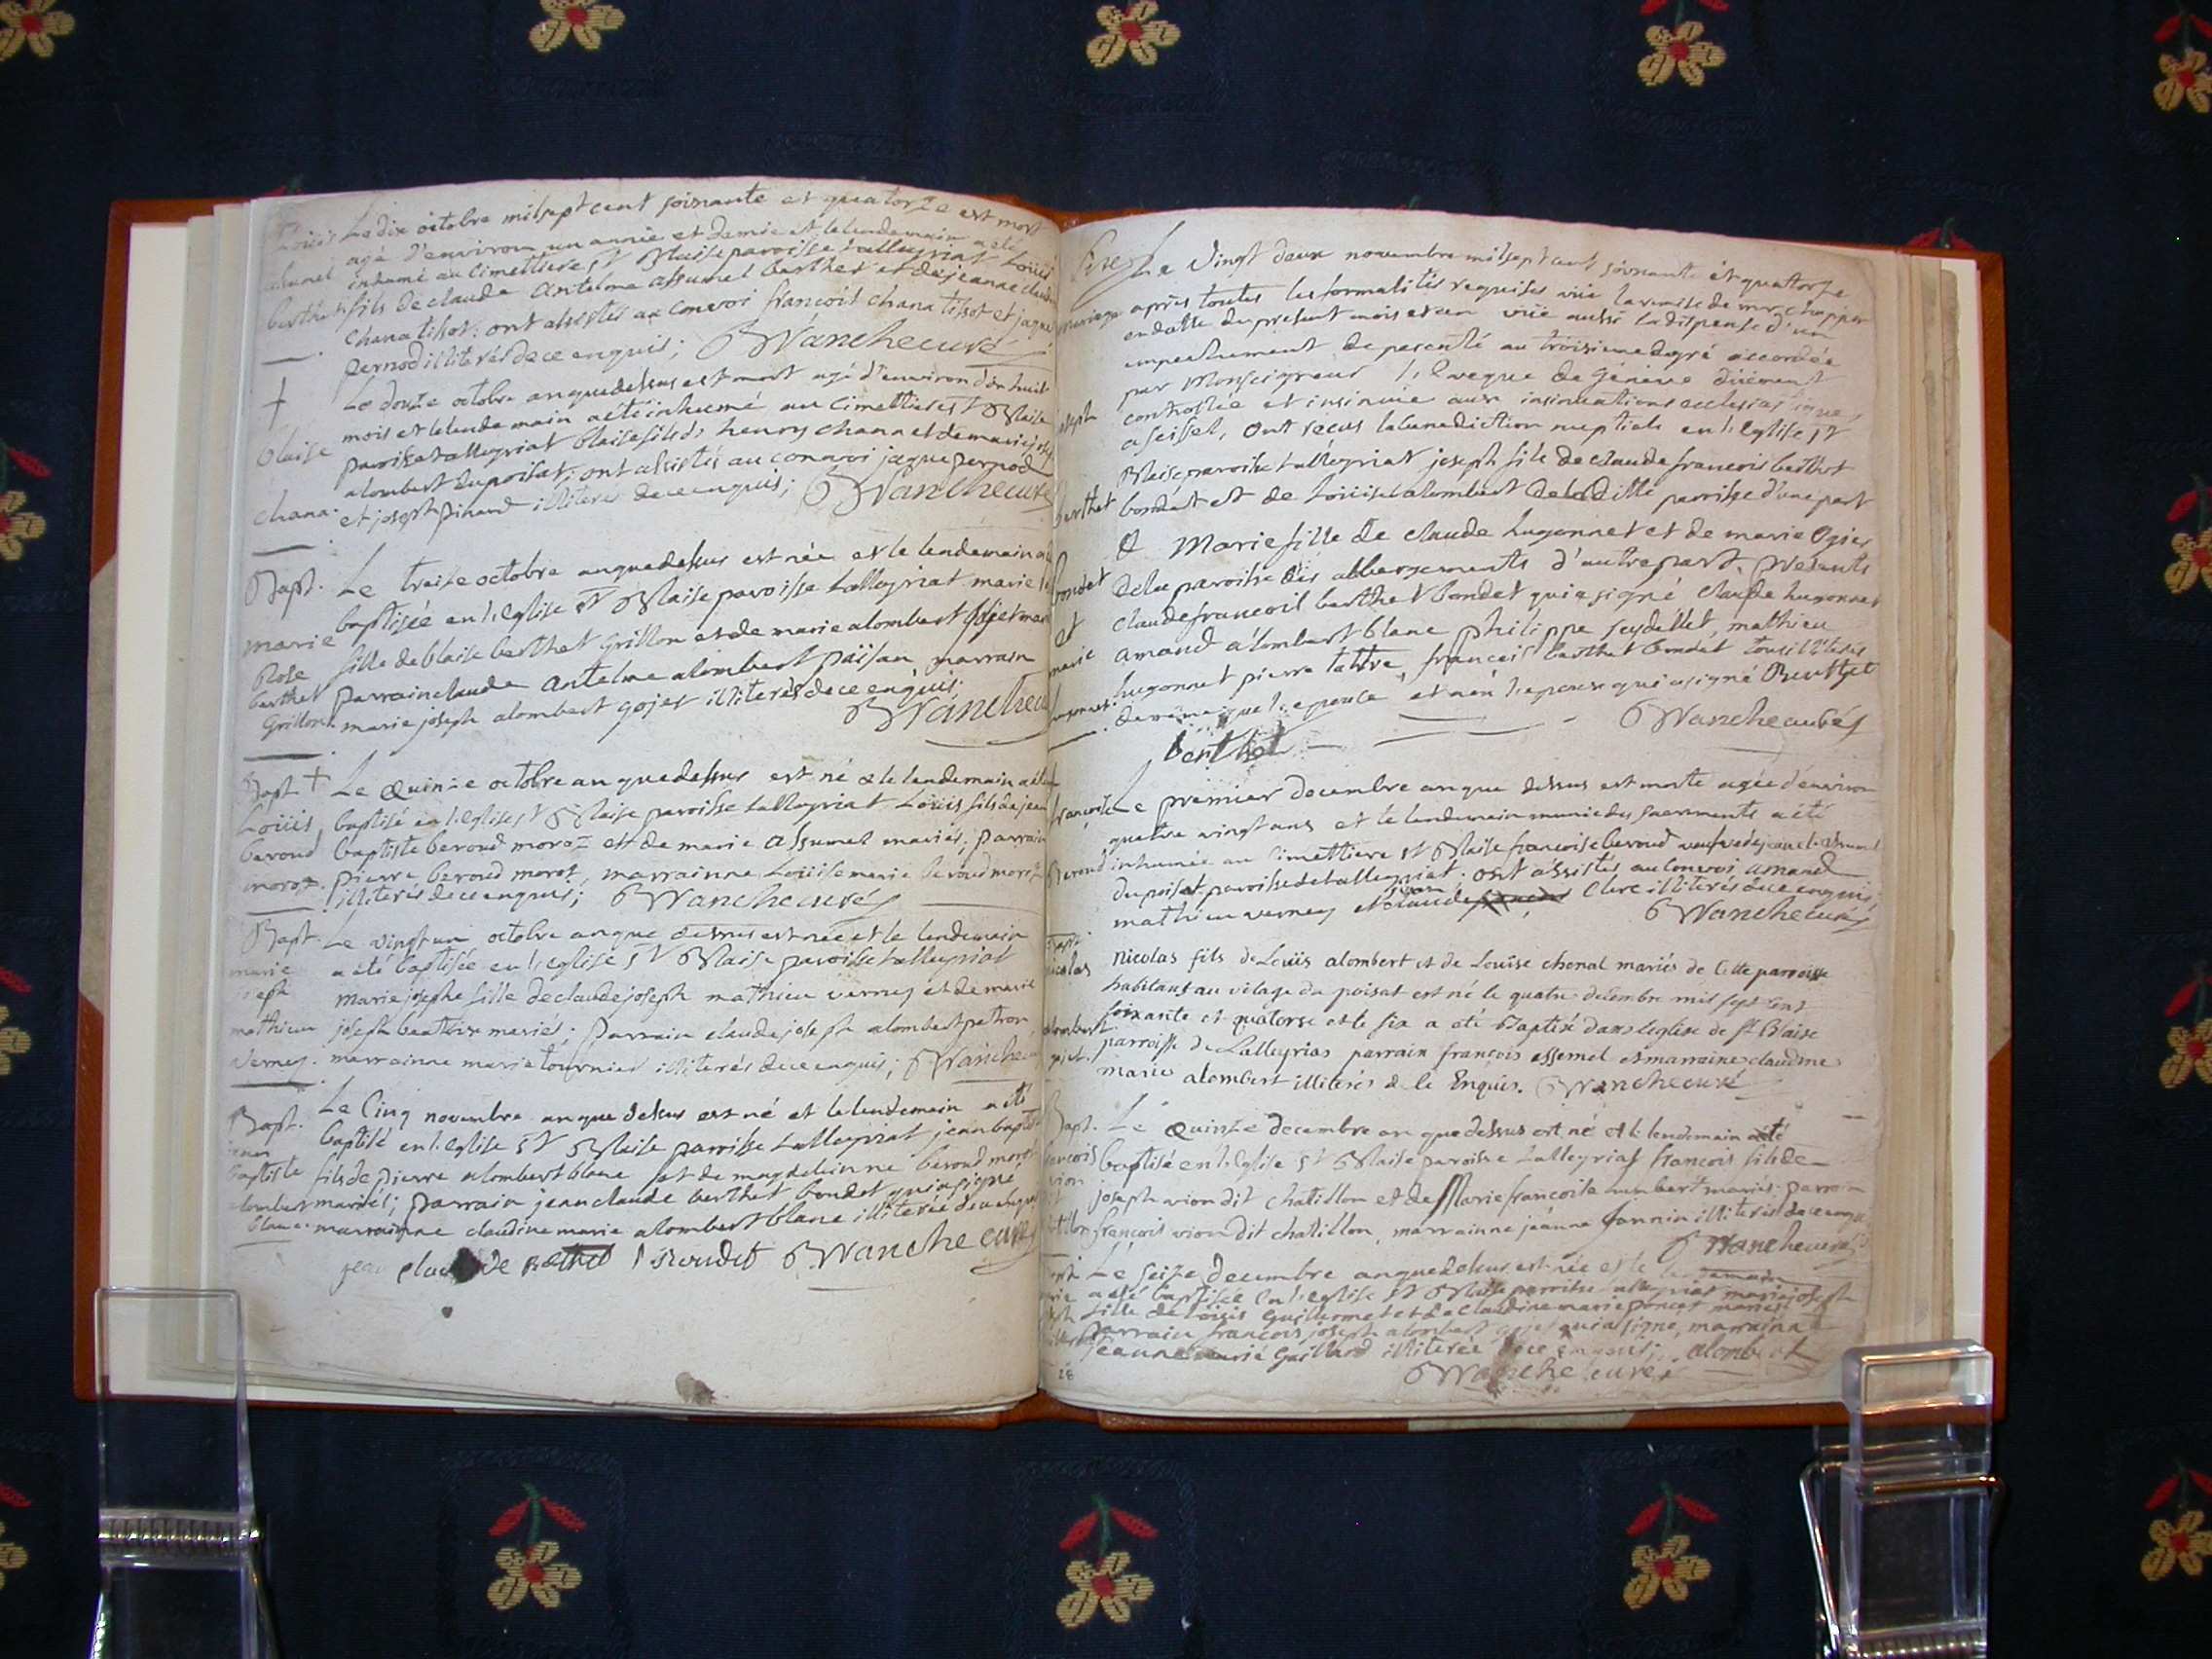 Loüis Le dix octobre milsept cent soixante et quatorze est mort
agé d'environ un année et demie et lelendemain a eté
inhumé au Cimettiere St Blaise paroisse Lalleyriat Loüis
berthet fils de claude antelme assumel berthet et dejeanne claudine
chanatissot; ont assistés au convoi francois chanatissot et jaque
pernod illiterés de ce enquis; Blanche curé
Le douze octobre anquedessus est mort agé d'environ dix huit
mois et lelendemain aeté inhumé au Cimettiere St Blaise
blaise paroisse Lalleyriat blaise fils de henry chana et de marie joseph
alombert du poisat; ont assistés au convoi jaque pernod
chana. et joseph pinard illiterés de ce enquis; Blanche curé
Bapt. Le treise octobre anquedessus est née et le lendemain a eté
baptisée en l'eglise St Blaise paroisse Lalleyriat marie
marie fille de blaise berthet Grillon et de marie alombert gojet mariés
Rose
berthet parrain claude antelme alombert païsan, marraine
Grillon. marie joseph alombert gojet illiterés de ce enquis;
Blanche
Bapt. Le Quinze octobre anquedessus est né & le lendemain a eté
Loüis baptisé en l'eglise St Blaise paroisse Lalleyriat Loüis fils de jean
beroud baptiste beroud moroz et de marie assumel mariés; parrain
moroz. pierre beroud morot, marrainne Loüise marie beroud moroz
illiterés de ce enquis; Blanche curé
Bapt. Le vingt un octobre anque dessus est née et le lendemain
marie a été baptisée en l'eglise St Blaise paroisse Lalleyriat
joseph marie josephe fille de claude joseph mathieu verney et de marie
mathieu joseph beatrix mariés; parrain claude joseph alombert petron
verney. marrainne marie tournier illiterés de ce enquis; Blanche
Bapt. Le Cinq novembre anque dessus est né et lelendemain a eté
jean baptisé en l'eglise St Blaise paroisse Lalleyriat jean baptiste
baptiste fils de pierre alombert blanc et de magdeleinne beroud moroz
alombert mariés; parrain jean claude berthet bondet qui a signé
blanc. marrainne claudine marie alombert blanc illiterée de ce enquis
jean claude Bethet Bondet Blanche curé
Le vingt deux novembre milsept cent soixante et quattorze
mariage après toutes les formalités requises vüe la remise de mr chapper
en datte du present mois et an vüe aussi la dispense d'un
empechement de parenté au troisieme degré accordée
par Monseigneur l'Eveque de Géneve düement
controllée et insinuée aux insinuations ecclesiastiques
joseph a seissel, ont reçus la benediction nuptiale en l'Eglise St
Blaise paroisse Lalleyriat joseph fils de claude francois berthet
berthet bondet et de Loüise alombert de laditte paroisse d'une part
& Marie fille de claude hugonnet et de marie Ogier
bondet de la paroisse des abbergements d'autre part. presents
et claude francois berthet bondet qui a signé claude hugonnet
marie amand alombert blanc philippe seydellet, mathieu
hugonnet. hugonnet pierre lattre, francois berthet bondet tous illiterés
de même que l'epouse et non l'epoux qui a signé Berthet
berthet Blanche curé
francoise Le premier decembre anque dessus est morte agée d'environ
quatre vingt ans et le lendemain munie des sacrements a été
Beroud inhumée au Cimettiere St Blaise francoise beroud veufve de jean cl. assumel
du poisat paroisse de Lalleyriat: ont assistés au convoi amand
mathieu verney et claude jean clerc illiterés de ce enquis;
Blanche curé
Bapt.
nicolas Nicolas fils de Louis alombert et de Louise chenal mariés de cette paroisse
habitant au vilage du poisat est né le quatre decembre mil sept cent
soixante et quatorse et le six a eté Baptisé dans l'eglise de st Blaise
alombert parroisse de Lalleyriat parrain francois assemel et marraine claudine
gojet. marie alombert illiterés de ce Enquis. Blanche curé
Bapt. Le Quinze decembre an que dessus est né et le lendemain a été
francois baptisé en l'Eglise St Blaise paroisse Lalleyriat francois fils de
vion joseph vion dit chatillon et de Marie francoise humbert mariés; parrain
chatillon francois vion dit chatillon, marrainne jeanne Jannin illiterés de ce enquis
Blanche curé
Bapt. Le Seize decembre anquedessus est née et le lendemain
marie a eté baptisée en l'eglise St Blaise paroisse Lalleyriat marie joseph
joseph fille de Loüis Guillermet et de claudine marie poncet mariés;
parrain francois joseph alombert gojet qui a signé, marrainne
jeanne marie Gaillard illiterée de ce enquis; alombert
28 Blanche curé